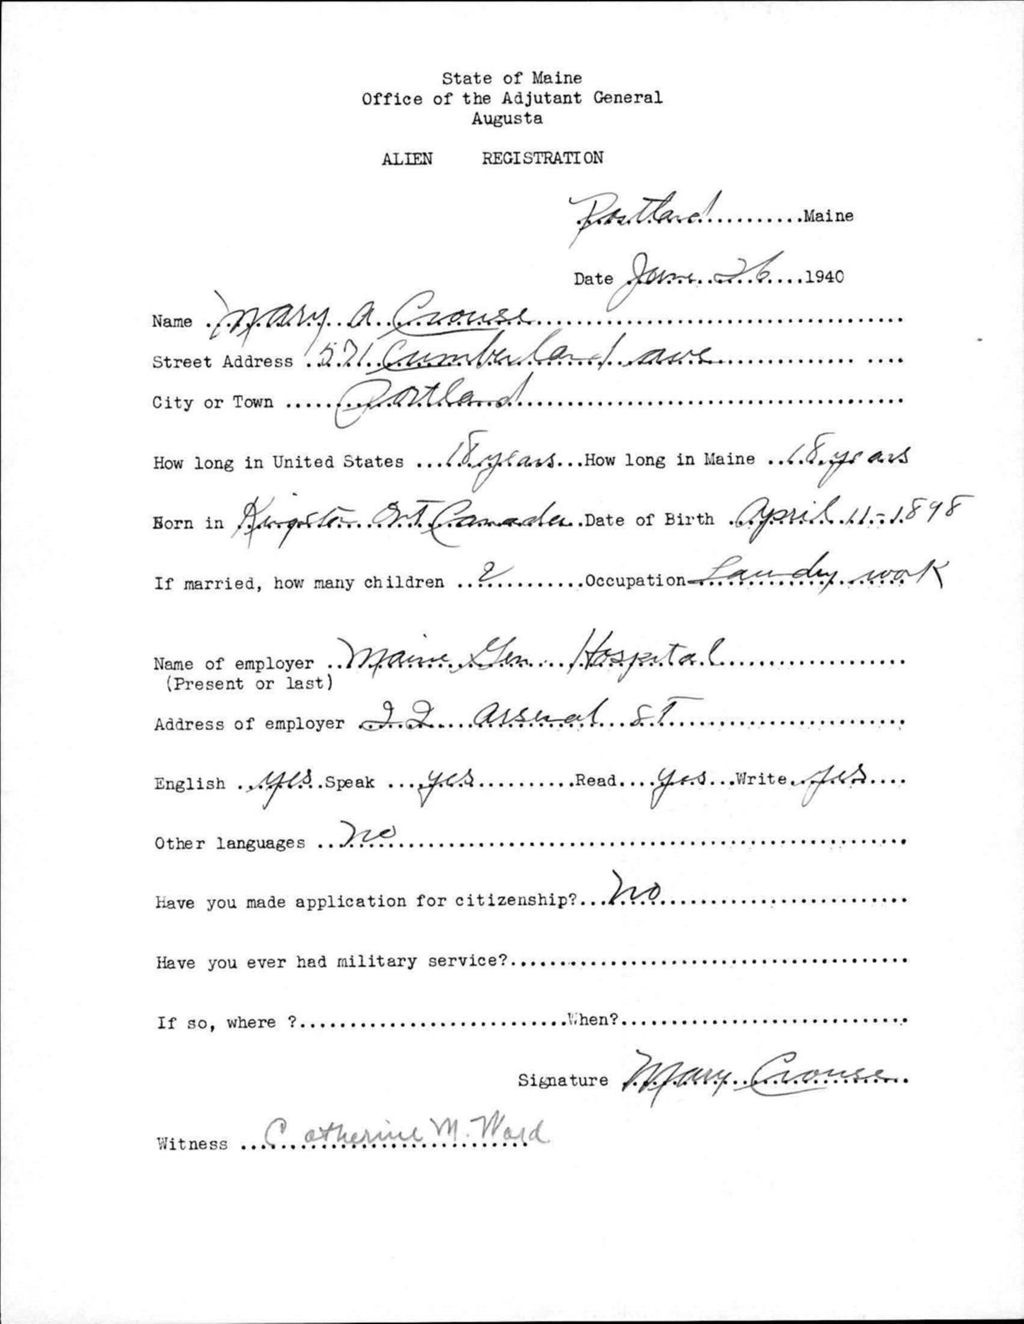 State of Maine
Office of the Adjutant General
Augusta
ALIEN REGISTRATION
Portland..........Maine
Date June 26....1940
Name ..Mary A. Crouse..............................
Street Address 571 Cumberland ave............
City or Town .....Portland..............................
How long in United States ...18 years...How long in Maine ..18 years
Born in Kingston Ont Canada..Date of Birth ..April 11-1898
If married, how many children ..2..........Occupation Laundry work
Name of employer ..Maine Gen Hospital...................
(Present or last)
Address of employer 22 Arsenal ST.......................
English ..yes..Speak ...yes..........Read....yes...Write..yes....
Other languages ..no..................................................
Have you made application for citizenship?...No.........................
Have you ever had military service?.......................................
If so, where ?..........................When?............................
Signature Mary Crouse..
Witness ...Catherine M. Ward